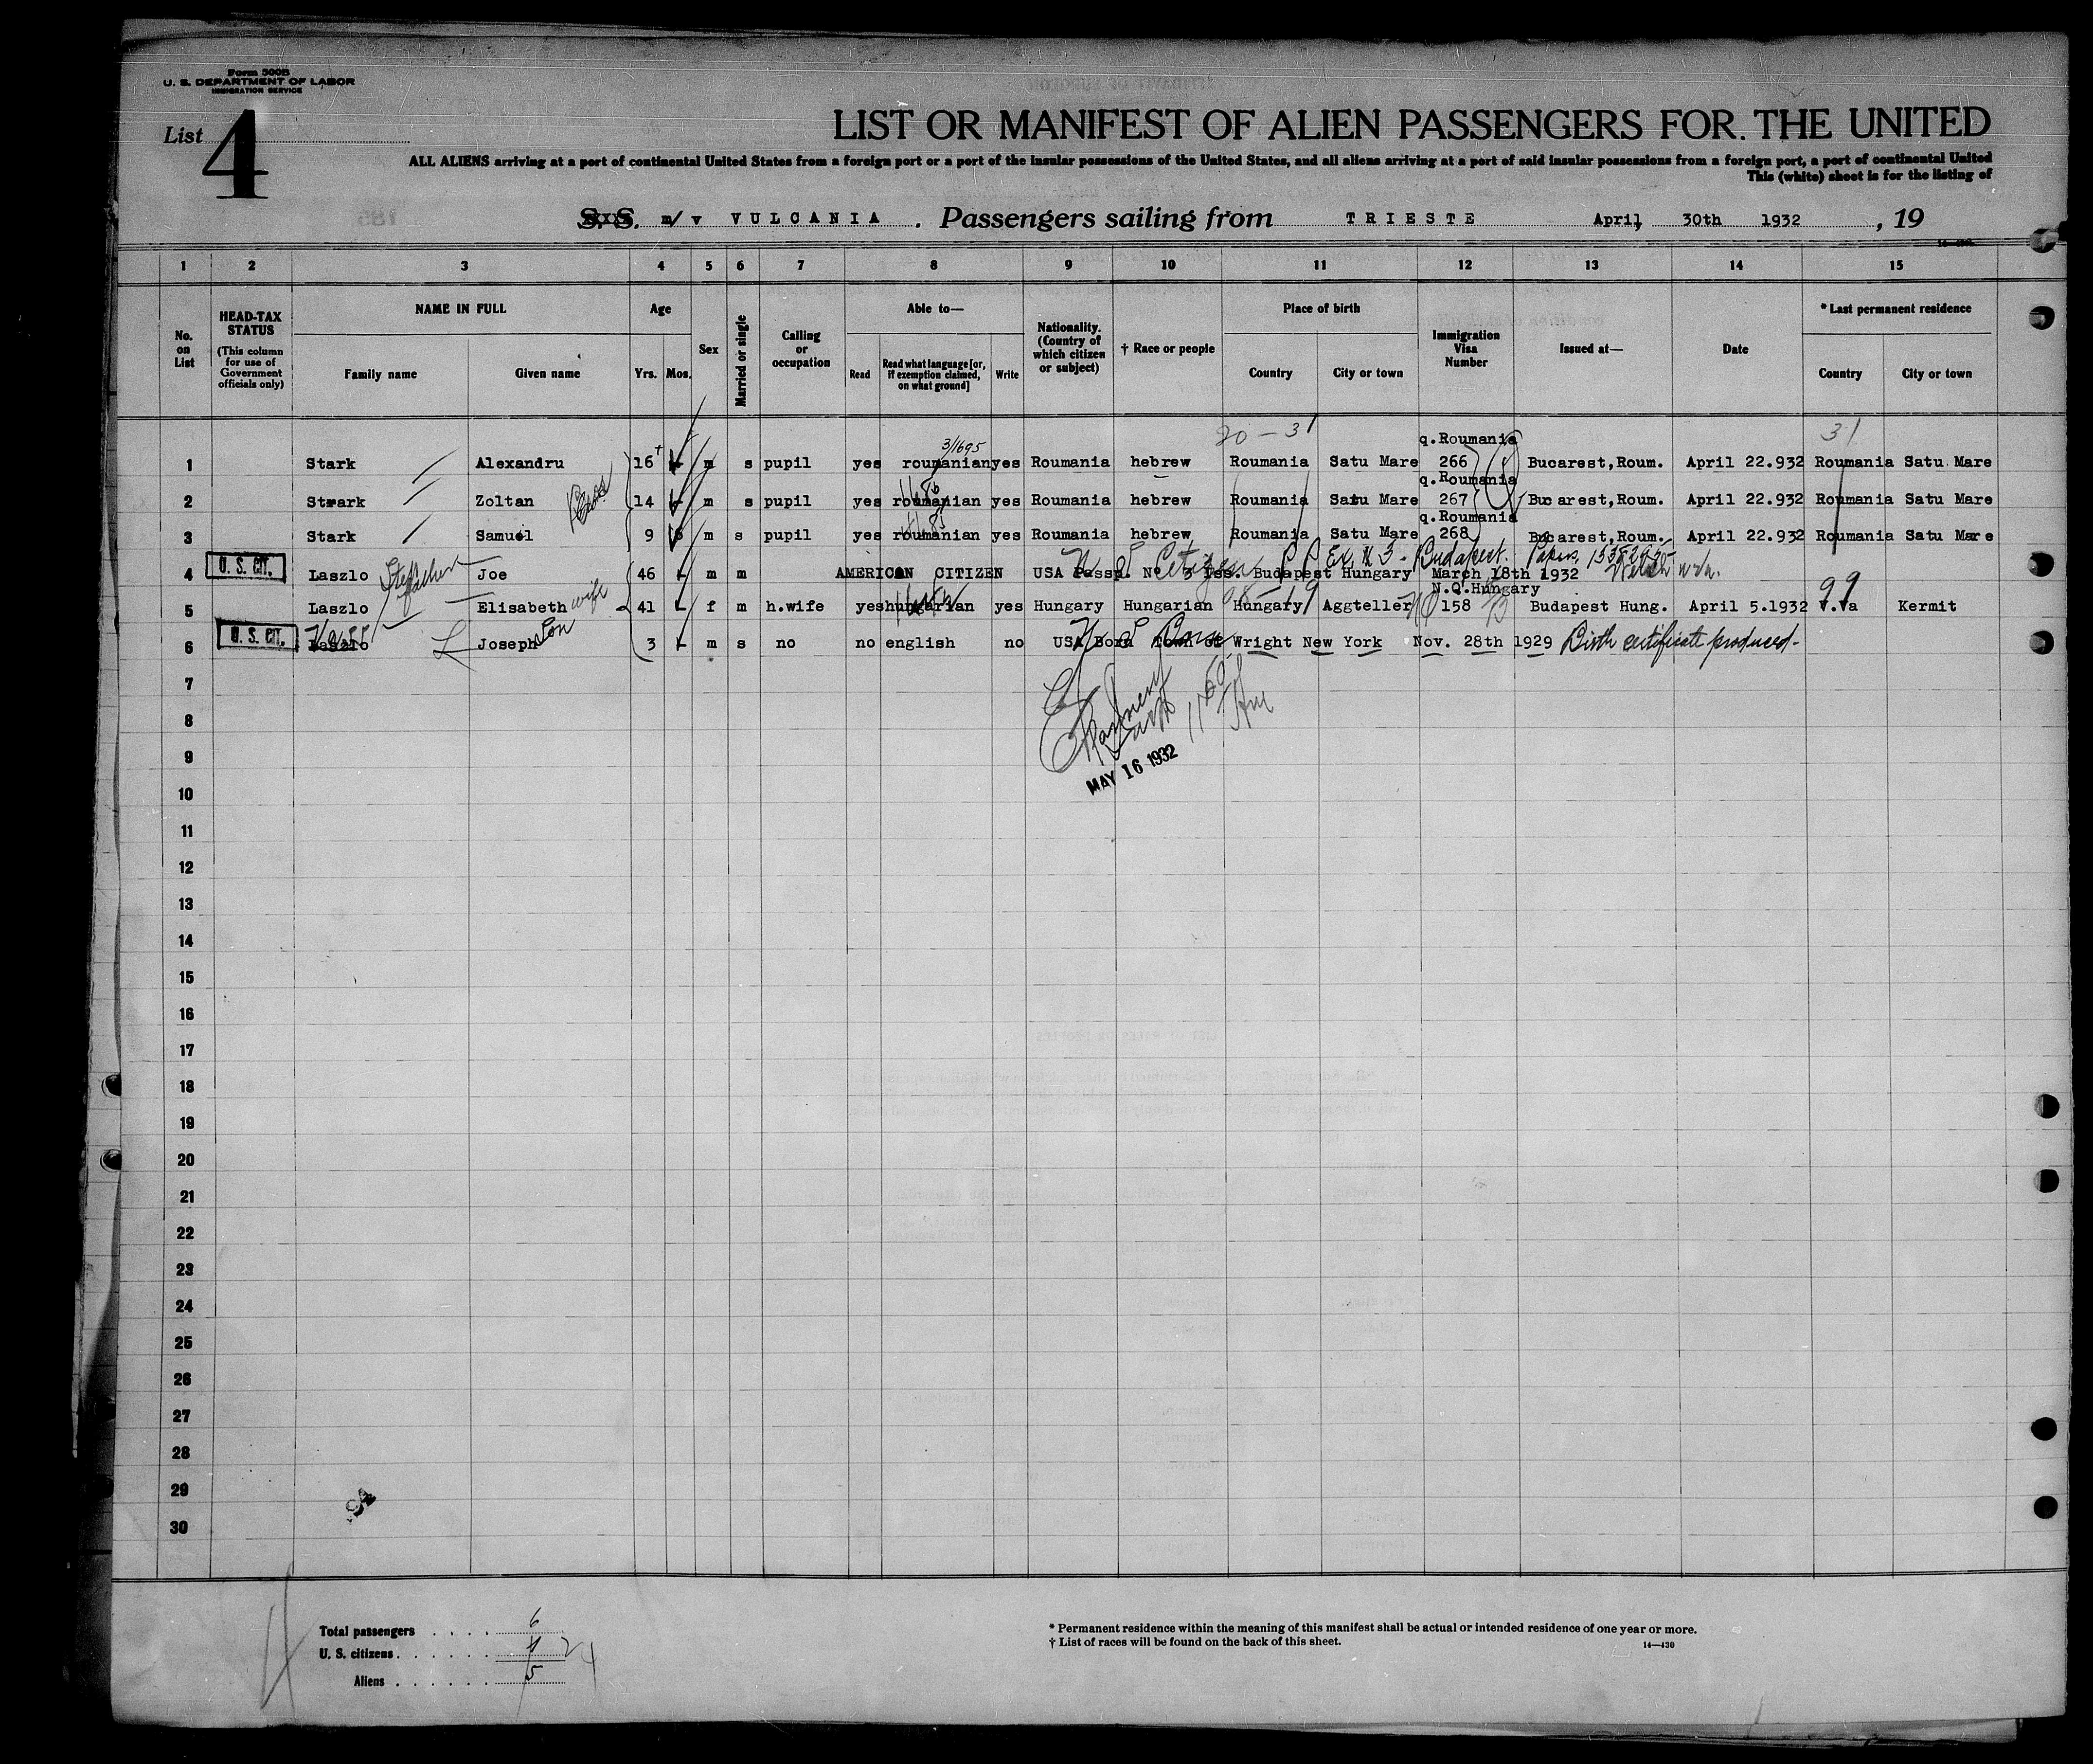 Form 500B
U. S. DEPARTMENT OF LABOR
IMMIGRATION SERVICE
List 4
LIST OR MANIFEST OF ALIEN PASSENGERS FOR THE UNITED
ALL ALIENS arriving at a port of continental United States from a foreign port or a port of the insular possessions of the United States, and all aliens arriving at a port of said insular possessions from a foreign port, a port of continental United
This (white) sheet is for the listing of
S. S. m/v VULCANIA. Passengers sailing from TRIESTE April, 30th 1932, 19
1 2 3 4 5 6 7 8 9 10 11 12 13 14 15
No. on List
HEAD-TAX STATUS (This column for use of Government officials only)
NAME IN FULL Family name Given name
Age Yrs. Mos.
Sex
Married or single
Calling or occupation
Able to— Read Read what language [or, if exemption claimed, on what ground] Write
Nationality. (Country of which citizen or subject)
† Race or people
Place of birth Country City or town
Immigration Visa Number
Issued at—
Date
* Last permanent residence Country City or town
20 - 31 31
3/1695
q.Roumania
1 Stark Alexandru 16 m s pupil yes roumanian yes Roumania hebrew Roumania Satu Mare 266 Bucarest,Roum. April 22.932 Roumania Satu Mare
q.Roumania
2 Stark Zoltan 14 m s pupil yes roumanian yes Roumania hebrew Roumania Satu Mare 267 Bucarest,Roum. April 22.932 Roumania Satu Mare
q.Roumania
3 Stark Samuel 9 m s pupil yes roumanian yes Roumania hebrew Roumania Satu Mare 268 Bucarest,Roum. April 22.932 Roumania Satu Mare
U. S. Citizen P P Budapest.
4 U. S. CIT. Laszlo Stepfather Joe 46 m m AMERICAN CITIZEN USA Passp. No 3 Iss. Budapest Hungary March 18th 1932
N.Q.Hungary
5 Laszlo Elisabeth wife 41 f m h.wife yes hungarian yes Hungary Hungarian Hungary Aggteller 158 Budapest Hung. April 5.1932 V.Va Kermit
99
6 U. S. CIT. Laszlo Joseph son 3 m s no no english no USA Born Town of Wright New York Nov. 28th 1929 Birth certificate produced-
MAY 16 1932
7
8
9
10
11
12
13
14
15
16
17
18
19
20
21
22
23
24
25
26
27
28
29
30
Total passengers 6
U. S. citizens
Aliens 5
* Permanent residence within the meaning of this manifest shall be actual or intended residence of one year or more.
† List of races will be found on the back of this sheet. 14—430